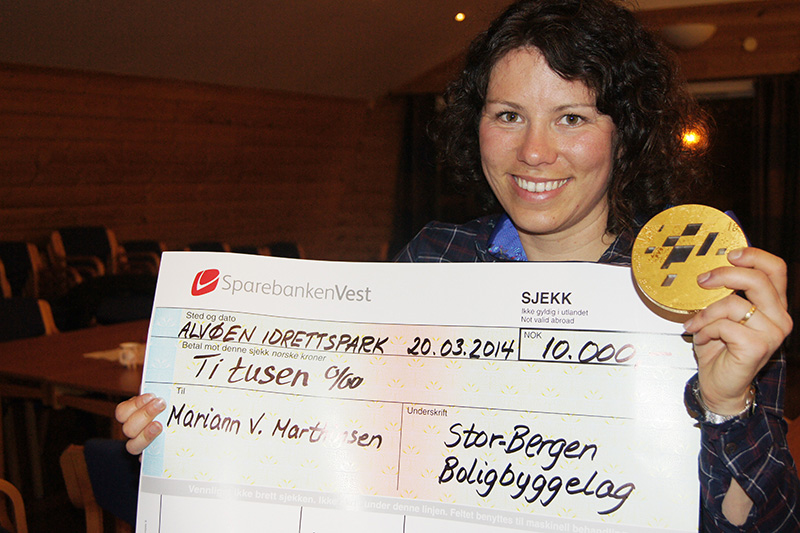 SpareBankenVest
SJEKK
Ikke gyldig i utlandet
Not valid abroad
Sted og dato
ALVØEN IDRETTSPARK 20.03.2014
NOK
10.000
Betal mot denne sjekk norske kroner
Ti tusen 0/00
Til
Mariann V. Marthinsen
Underskrift
Stor-Bergen
Boligbyggelag
Vennligst ikke brett sjekken. Ikke under denne linjen. Feltet benyttes til maskinell